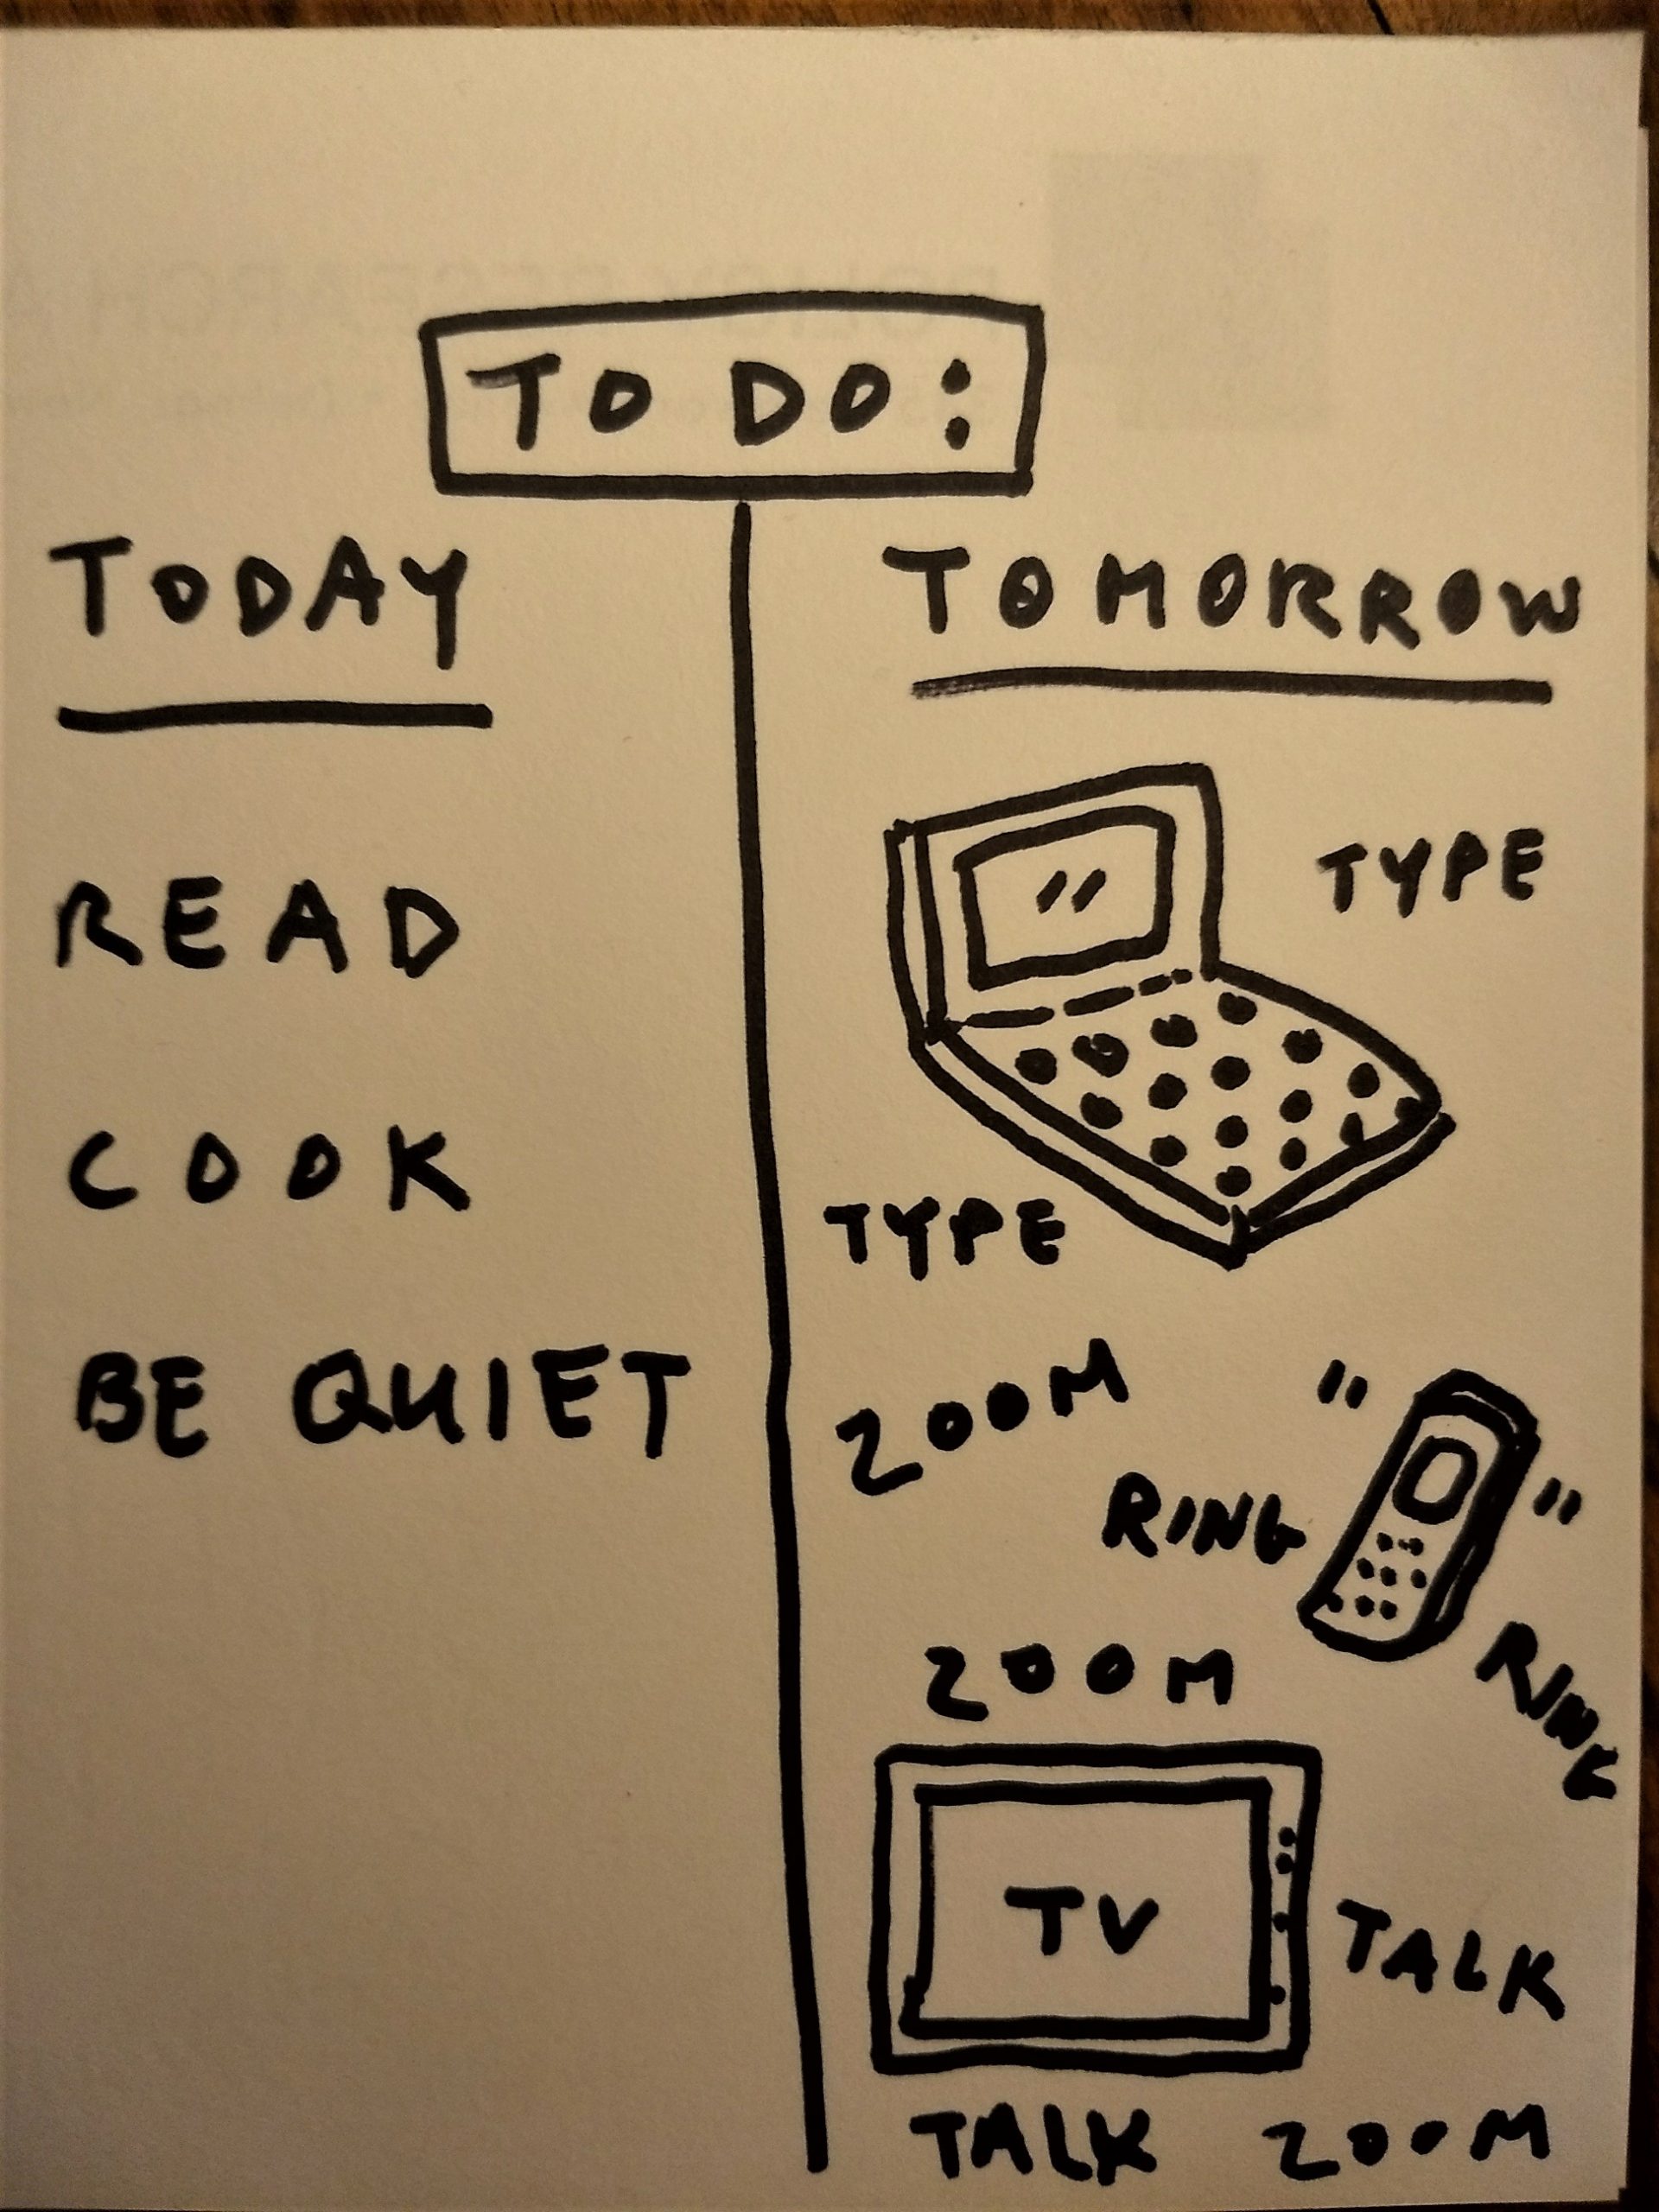 TO DO:
TODAY
READ
COOK
BE QUIET
TOMORROW
TYPE
TYPE
ZOOM
RING
RING
ZOOM
TV
TALK
TALK ZOOM